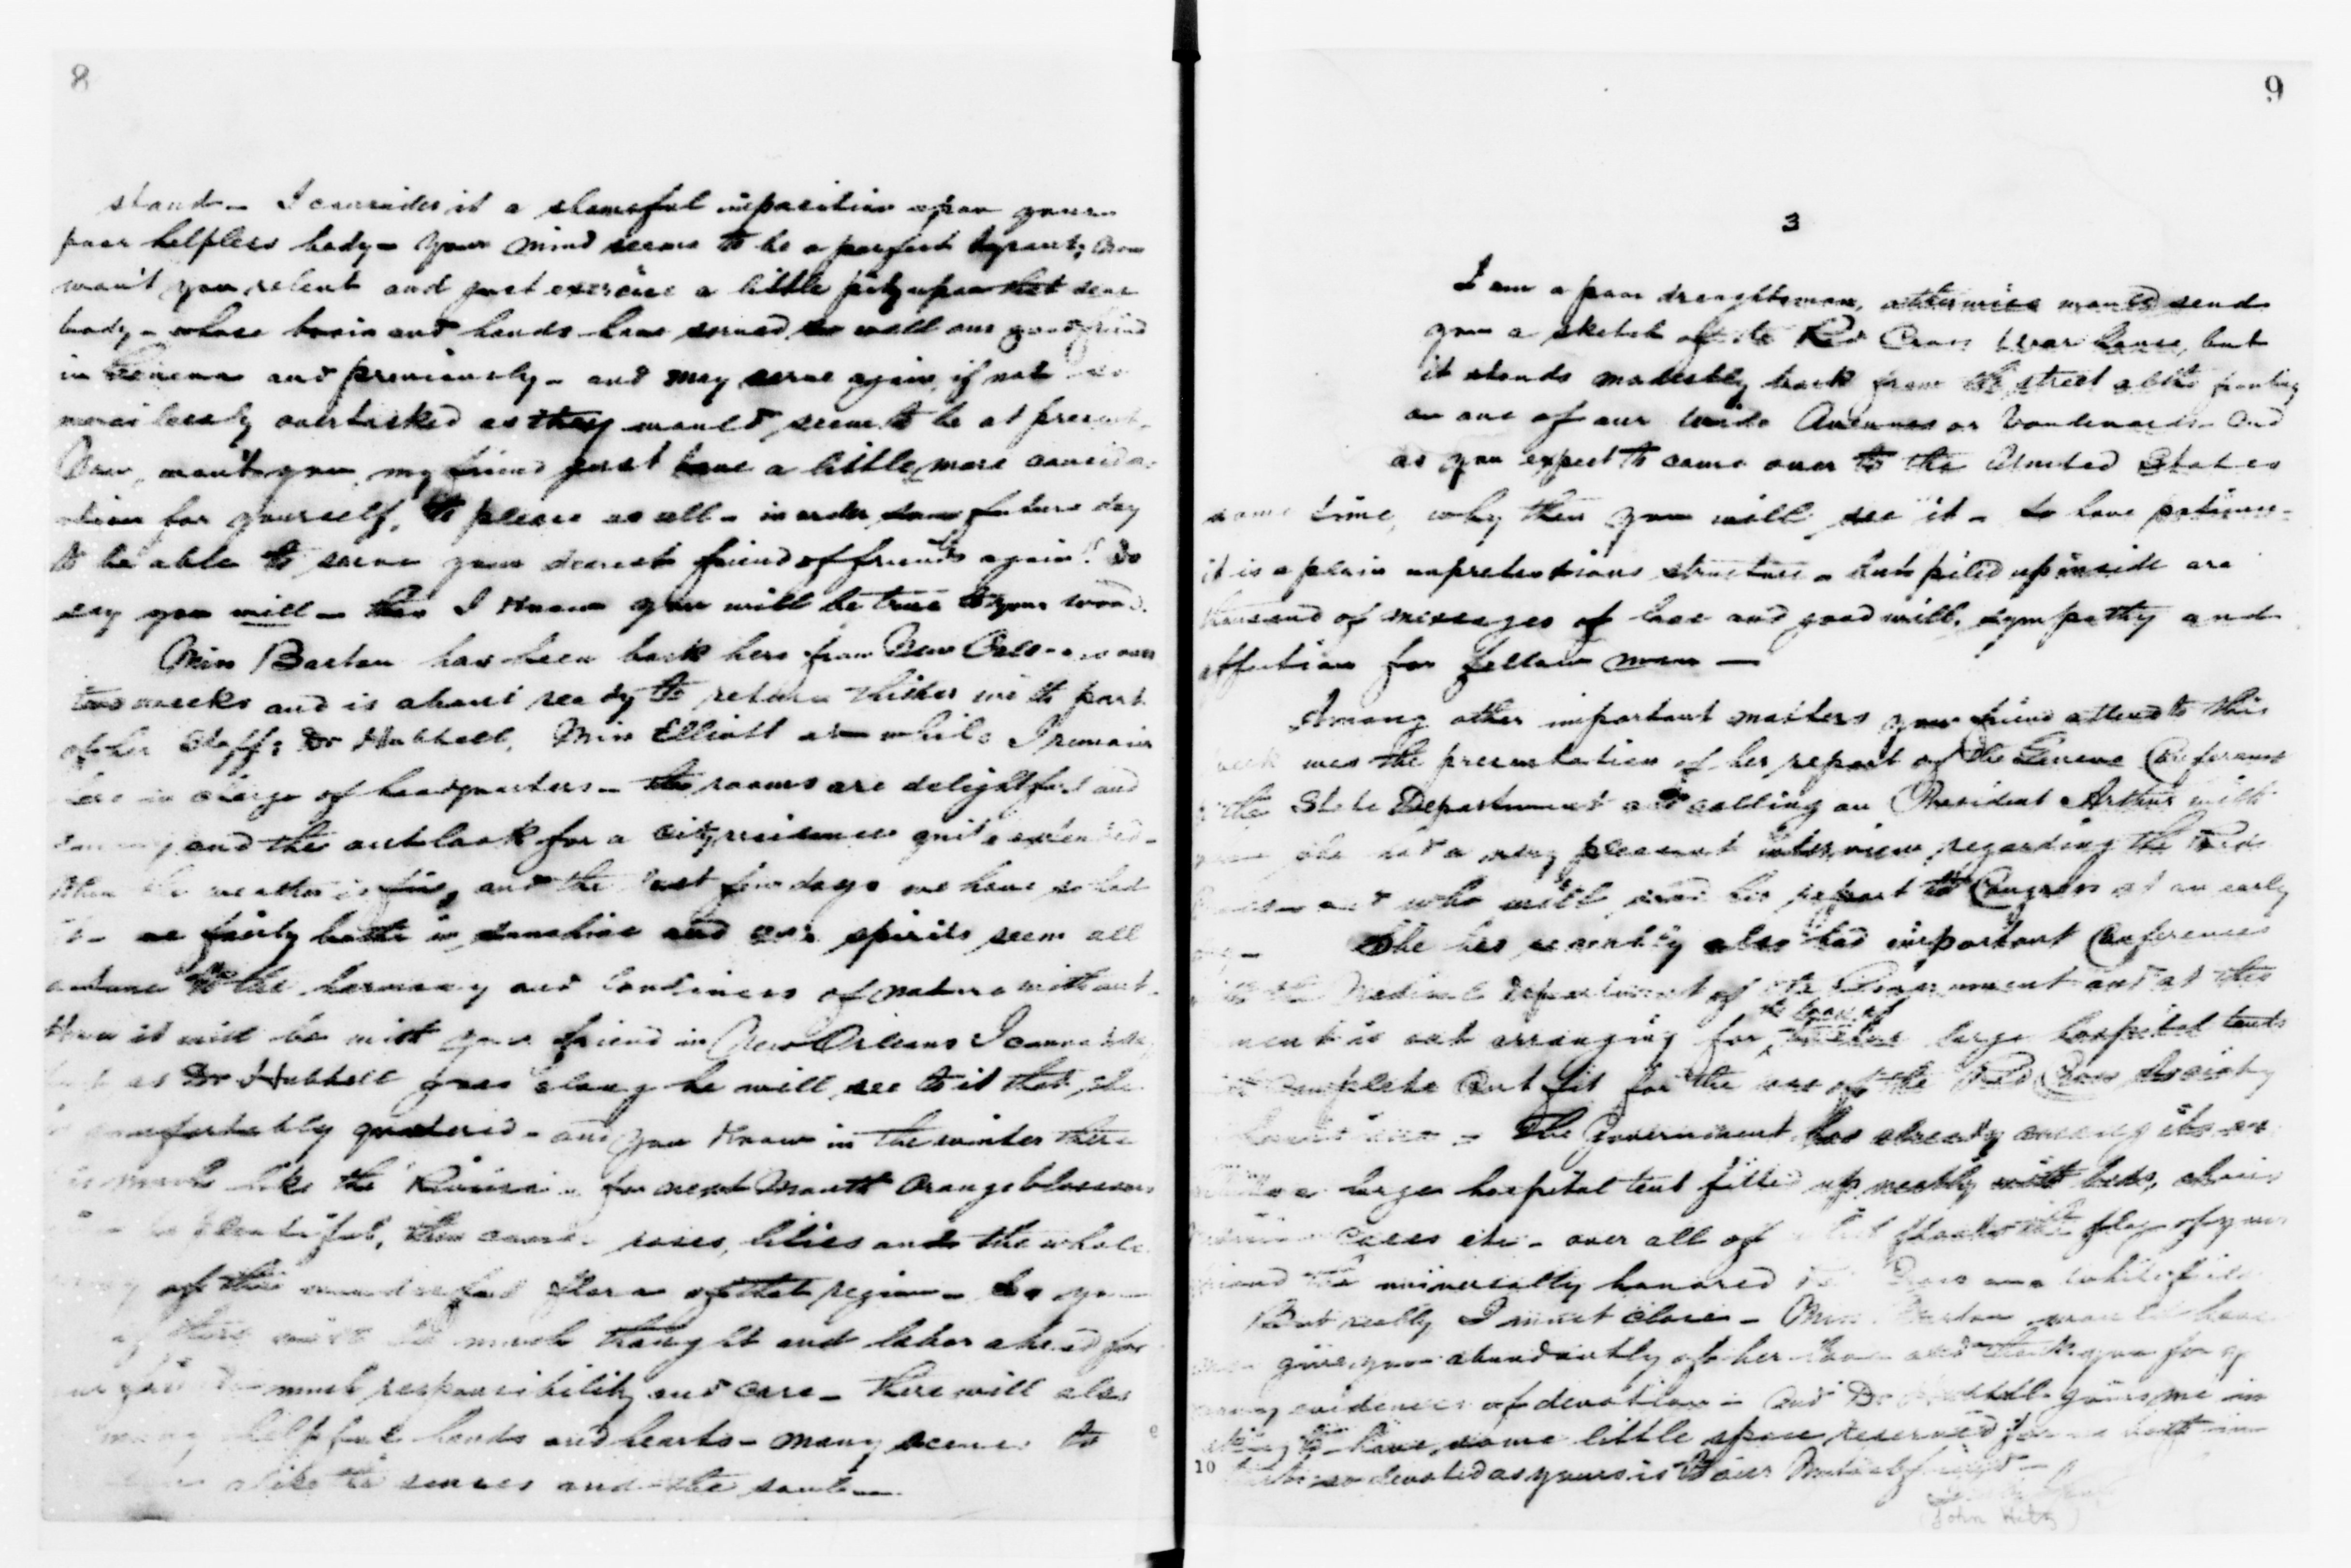 8
stand - I consider it a shameful imposition upon your
poor helpless body - your mind seems to be a perfect tyrant; now
won't you relent and just exercise a little pity upon that dear
body - whose brain and hands have served so well our good friend
in Geneva and previously - and may serve again, if not so
mercilessly overtasked as they would seem to be at present.
Now, won't you, my friend just have a little more conside-
ration for yourself, to please us all - in order some future day
to be able to serve your dearest friend of friends again? Do
say you will - then I know you will be true to your word.
Miss Barton has been back here from New Orleans over
two weeks and is about ready to return thither with part
of her Staff; Dr Hubbell, Miss Elliott while I remain
here in charge of headquarters - the rooms are delightful and
and the outlook for a city residence quite extended -
When the weather is fine, and the last few days we have so had
it - we fairly bathe in sunshine and our spirits seem all
attune to the harmony and loveliness of nature without.
How it will be with your friend in New Orleans I cannot say
but as Dr Hubbell goes along he will see to it that she
is comfortably quartered - and you know in the winter there
is much like the Riviera - for next month orange blossoms
plentiful, then come roses, lilies and the whole
of the wonderful flora of that region - So you
there will be much thought and labor ahead for
our friend - much responsibility and care - there will also
many helpful hands and hearts - many scenes to
alike the senses and the soul -
9
3
I am a poor draughtsman, otherwise would send
you a sketch of the Red Cross Ware house, but
it stands modestly back from the street altho fronting
on one of our wide Avenues or Boulevards - and
as you expect to come over to the United States
some time, why then you will see it - so have patience -
it is a plain unpretentious structure - but piled up inside are
thousand of messages of love and good will, sympathy and
affection for fellow man -
Among other important matters your friend attend to this
week was the presentation of her report of the Geneva Conference
to the State Department and calling on President Arthur with
whom she had a very pleasant interview regarding the Red
Cross and who will send his report to Congress at an early
day - She has recently also had important Conferences
with the Medical Department of the Government and at this
moment is out arranging for the loan of large hospital tents
with complete Out fit for the use of the Red Cross Society
- The Government has already among its
a large hospital tent fitted up neatly with beds, chairs
cases etc. - over all of which floats the flag of your
friend the universally honored Red Cross on a white field
But really I must close - Miss Barton would have
me give you abundantly of her love and thank you for your
many evidences of devotion - and Dr Hubbell joins me in
asking to have some little space reserved for us both in
so devoted as yours is to our Mutual friend -
10
(John Hitz)